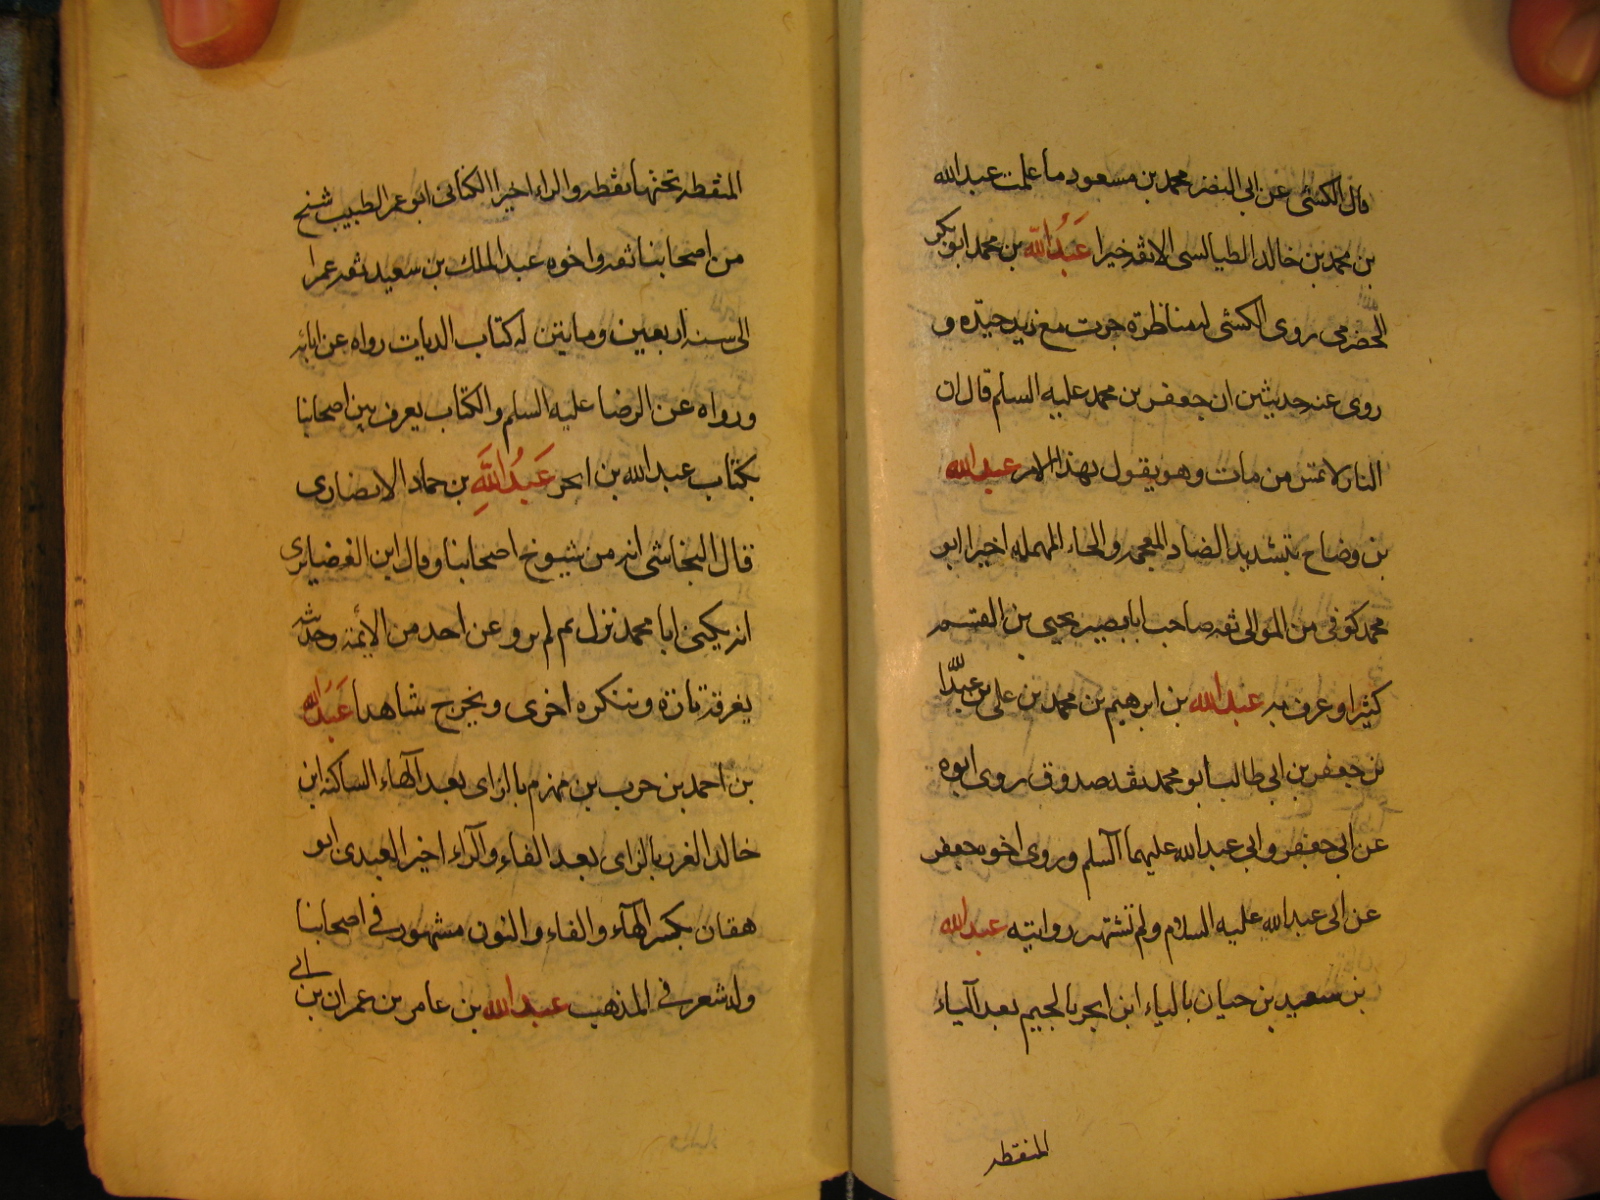 قال الكشى عن ابى النضر محمد بن مسعود ما علمت عبدالله
بن محمد بن خالد الطيالسى الا ثقة خيرا عَبدُالله بن محمد ابو بكر
الحضرمى روى الكشى له مناظرة جرت مع زيد جيّده و
روى عنه حديثين ان جعفر بن محمد عليه السلم قال ان
النار لا تمس من مات وهو يقول بهذا الامر عبدالله
بن وضاح بتشديد الضاد المعجمه والحاء المهمله اخيرا ابو
محمد كوفى من الموالى ثقه صاحب ابا بصير يحيى بن القسم
كثيرا وعرف به عبدالله بن ابرهيم بن محمد بن على بن عبدالله
بن جعفر بن ابى طالب ابو محمد ثقه صدوق روى ابوه
عن ابى جعفر وابى عبدالله عليهما السلم وروى اخوه جعفر
عن ابى عبدالله عليه السلام ولم تشتهر روايته عبدالله
بن سعيد بن حيان بالياء ابن ابجر بالجيم بعد الباء
المنقطه
المنقطه تحتها نقطه والراء اخيرا الكنانى ابو عمر الطبيب شيخ
من اصحابنا ثقه واخوه عبد الملك بن سعيد ثقه عمرا
الى سنه اربعين وماتين له كتاب الديات رواه عن ابائه
ورواه عن الرضا عليه السلم والكتاب يعرف بين اصحابنا
بكتاب عبدالله بن ابجر عَبدُاللهِ بن حماد الانصارى
قال النجاشى انه من شيوخ اصحابنا وقال ابن الغضايرى
انه يكنى ابا محمد نزل قم لم يرو عن احد من الأئمه وحديثه
يعرفه تارة وننكره اخرى ويخرج شاهدا عَبدَالله
بن احمد بن حرب بن مهزم بالزاى بعد الهاء الساكنه ابن
خالد الفزر بالزاى بعد الفاء والراء اخيرا العبدى ابو
هفان بكسر الهاء والفاء والنون مشهور فى اصحابنا
وله شعر فى المذهب عبدالله بن عامر بن عمران بن ابى